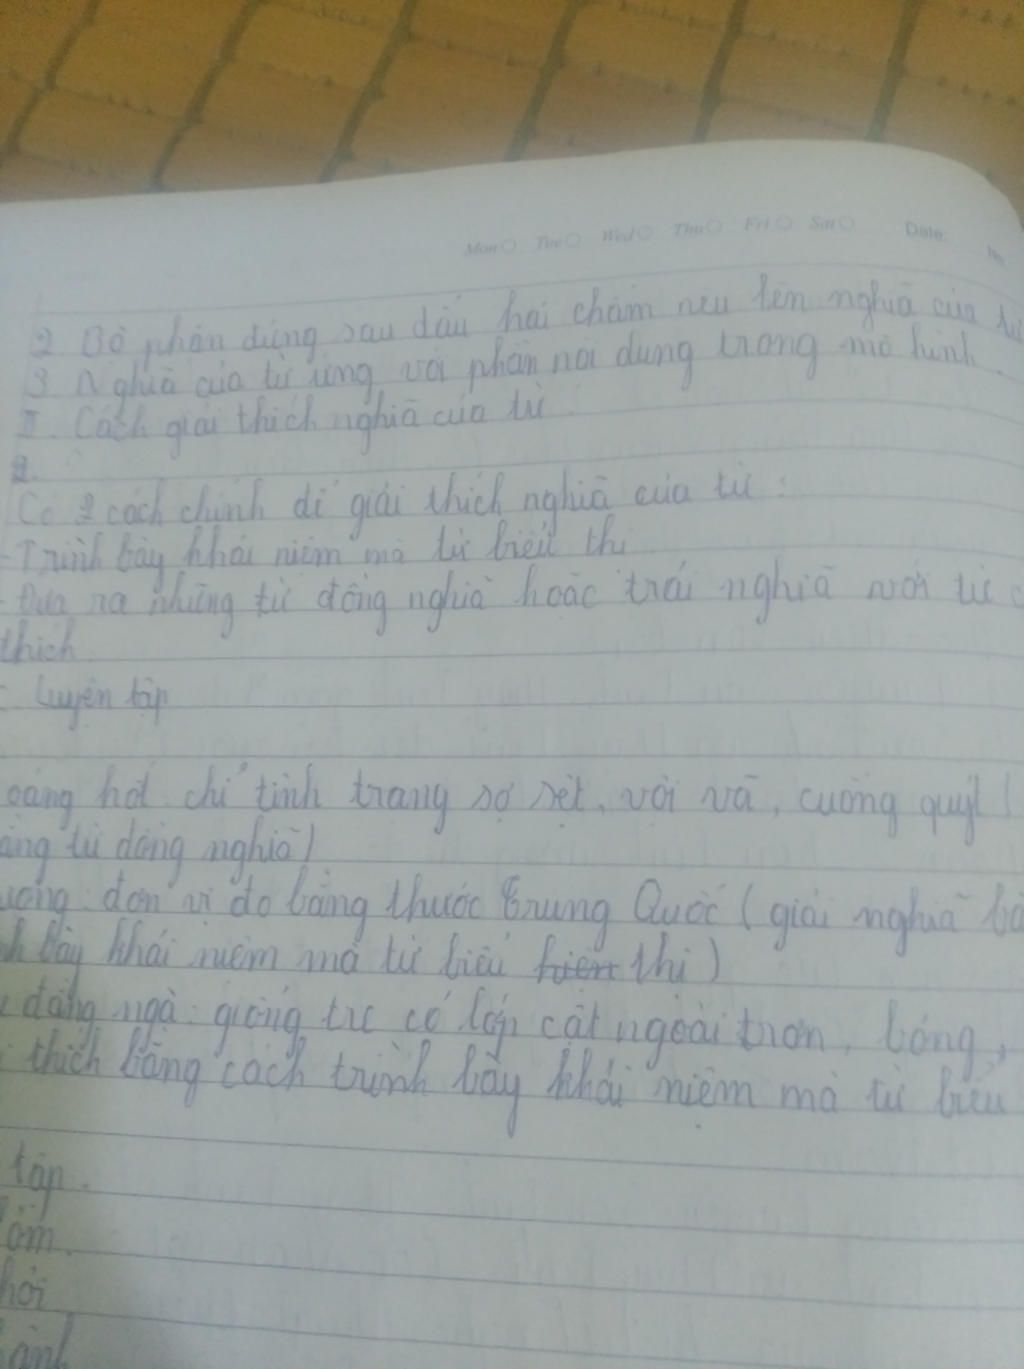 Mon Tue Wed Thu Fri Sat Date:
2 Bộ phận đứng sau dấu hai chấm nêu lên nghĩa của từ
3 Nghĩa của từ ứng với phần nội dung trong mô hình.
II. Cách giải thích nghĩa của từ.
2.
Có 2 cách chính để giải thích nghĩa của từ:
- Trình bày khái niệm mà từ biểu thị
- Đưa ra những từ đồng nghĩa hoặc trái nghĩa với từ
thích
Luyện tập
oảng hốt chỉ tình trạng sợ sệt, vội vã, cuống quýt (
ằng từ đồng nghĩa)
ượng: đơn vị đo bằng thước Trung Quốc (giải nghĩa
h bày khái niệm mà từ biểu hiện thị)
đằng ngà: giống tre có lớp cật ngoài trơn, bóng,
thích bằng cách trình bày khái niệm mà từ biểu
tập.
ỏm.
hỏi
ành